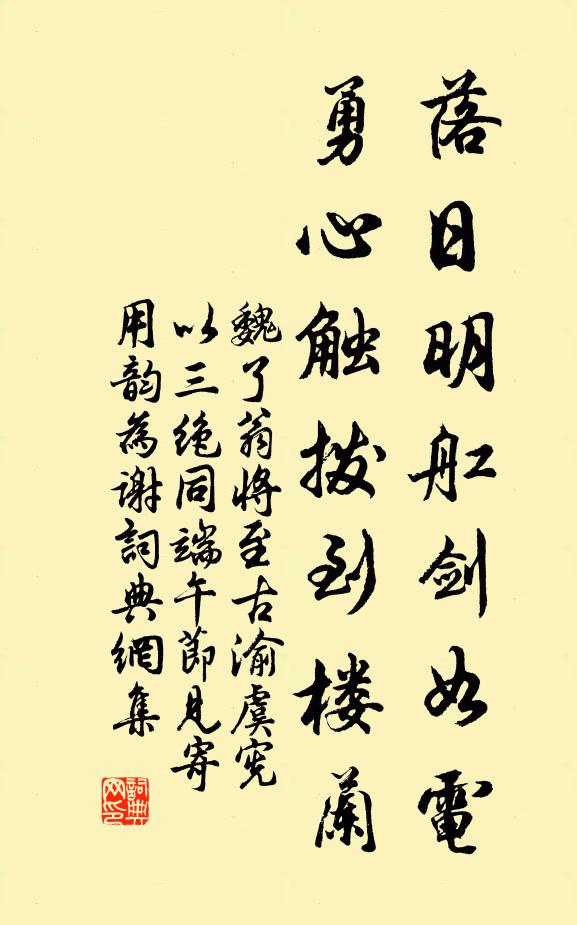 落日明舡剑如電
勇心触拨到楼蘭
魏了翁将至古渝虞宪
以三绝同端午節見寄
用韵為谢詞典網集
詞典
网印